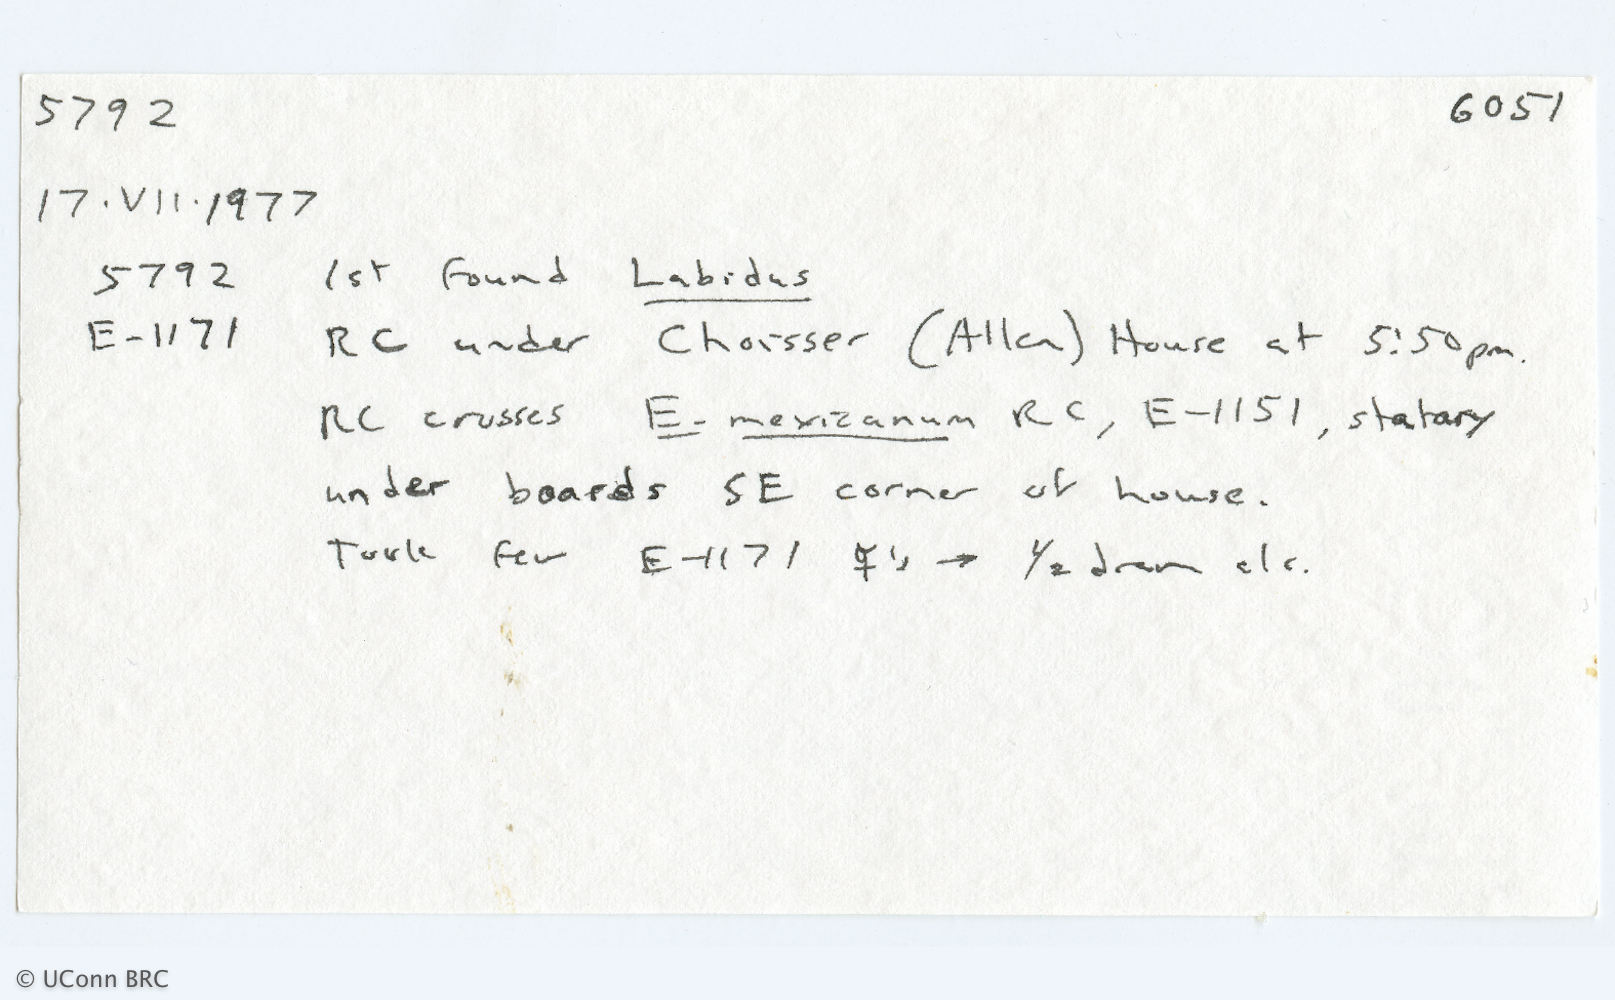 5792 6051
17.VII.1977
5792 1st found Labidus
E-1171 RC under Choisser (Allen) House at 5:50pm.
RC crosses E. mexicanum RC, E-1151, statary
under boards SE corner of house.
Took few E-1171 ☿'s → 1/2 dram alc.
© UConn BRC